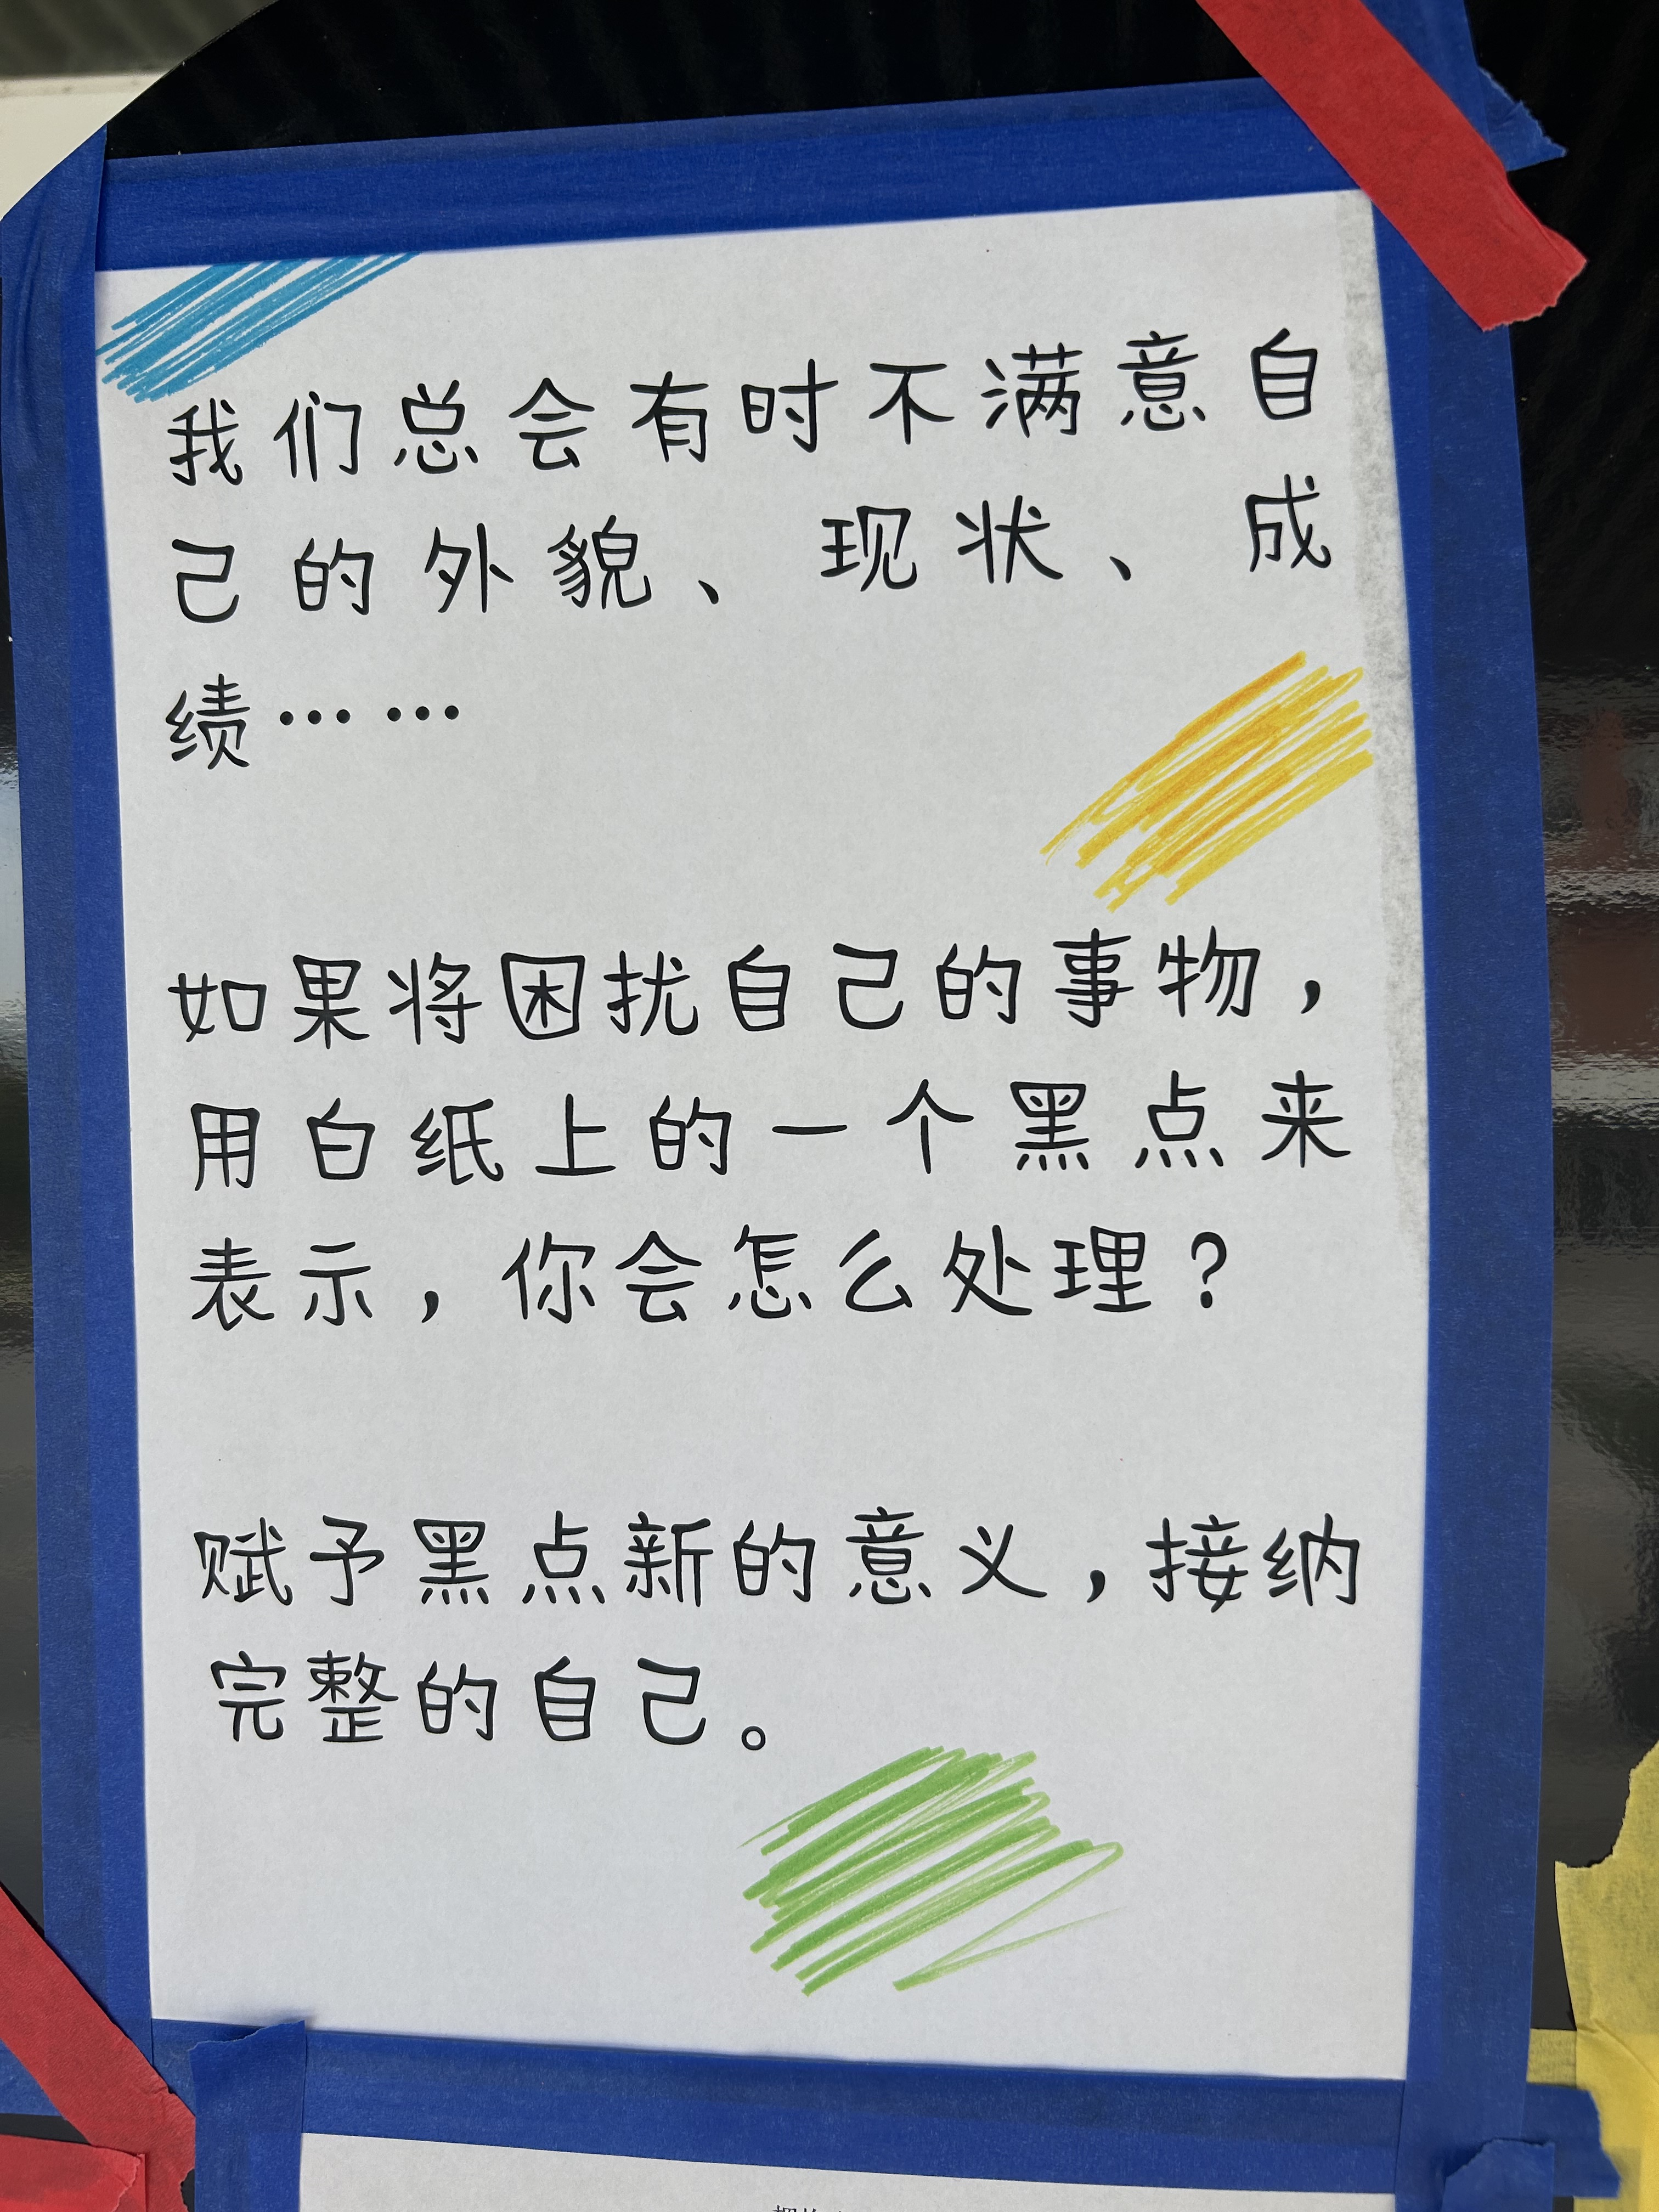 我们总会有时不满意自
己的外貌、现状、成
绩……
如果将困扰自己的事物，
用白纸上的一个黑点来
表示，你会怎么处理？
赋予黑点新的意义，接纳
完整的自己。